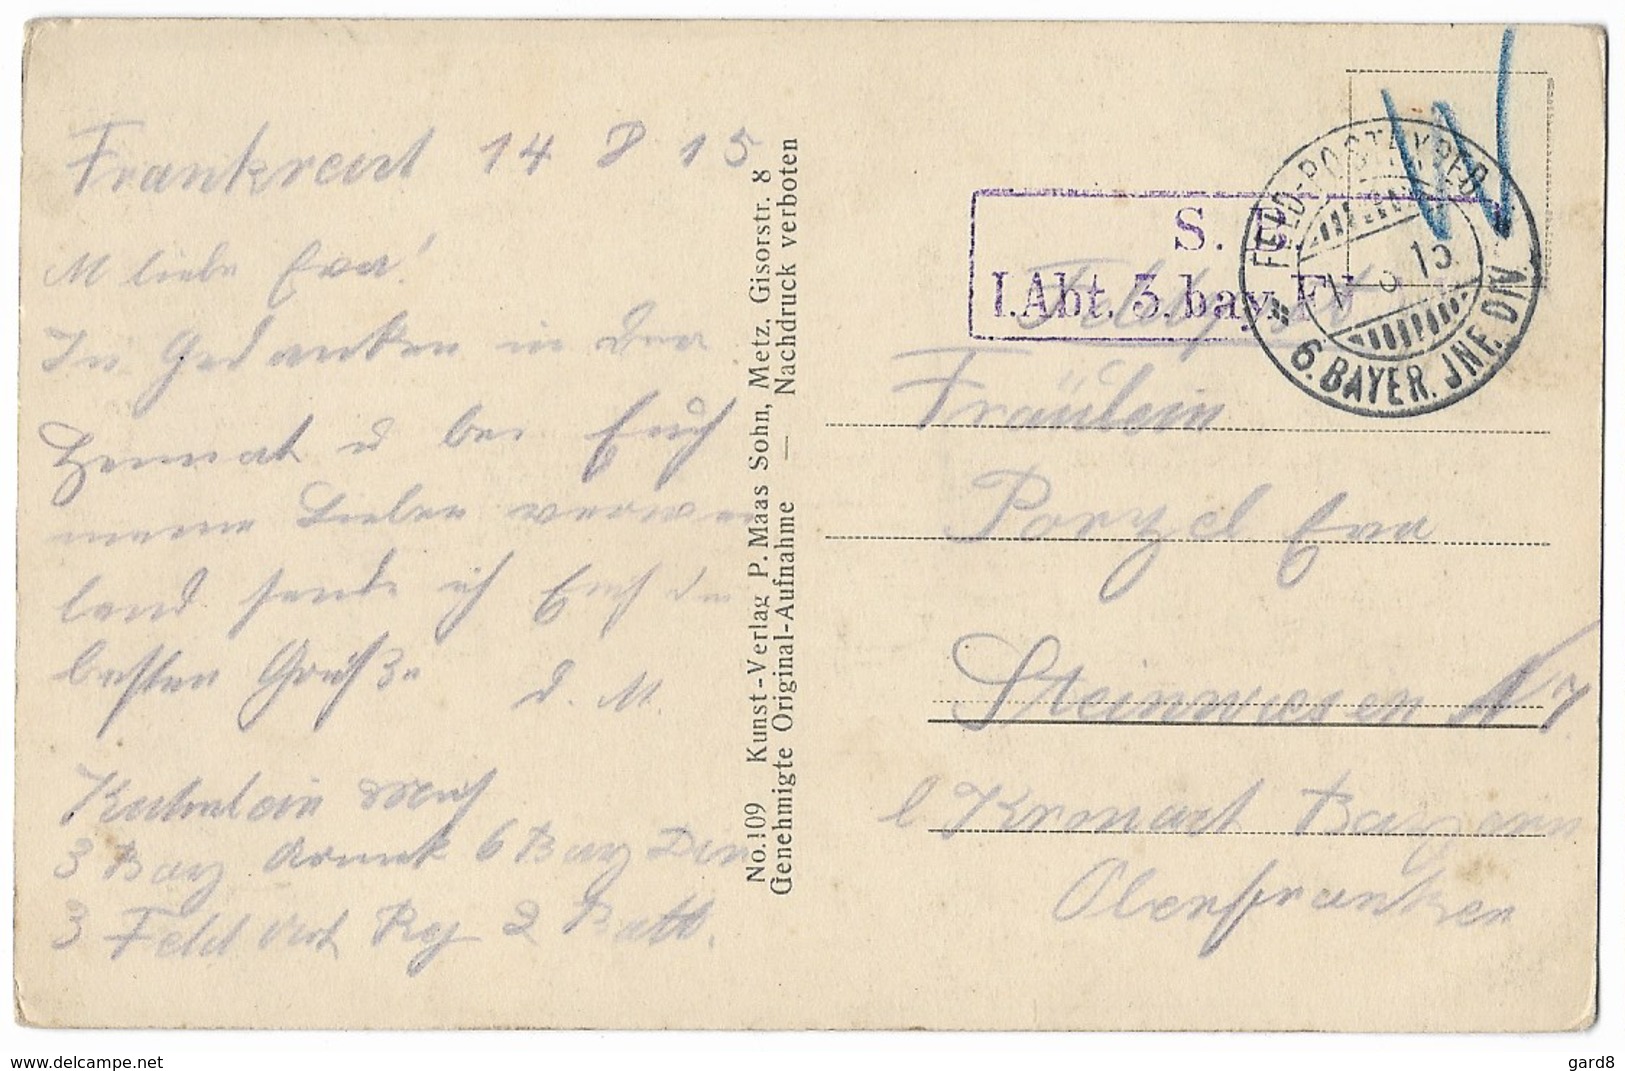 Frankreich 14 8 15
M liebe Eva!
In Gedanken in der
Heimat u bei Euch
meine Lieben
sende ich Euch die
besten Grüße d. M.
3 Bay 6 Bay Div
3 Feld Art Reg 2 Batt.
No. 109 Kunst-Verlag P. Maas Sohn, Metz, Gisorstr. 8
Genehmigte Original-Aufnahme — Nachdruck verboten
S. B.
I. Abt. 3. bay. F
FELD-POSTEXPED.
6. BAYER. JNF. DIV.
Feldpost
Fräulein
Porzel Eva
Steinwiesen
Bayern
Oberfranken
www.delcampe.net
gard8